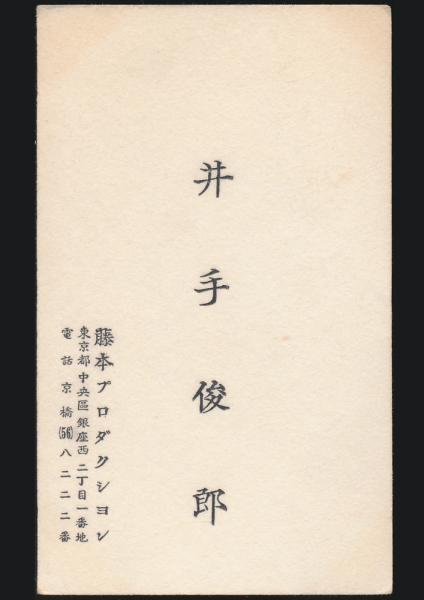 井手俊郎
藤本プロダクシヨン
東京都中央區銀座西二丁目一番地
電話京橋(56)八二二二番